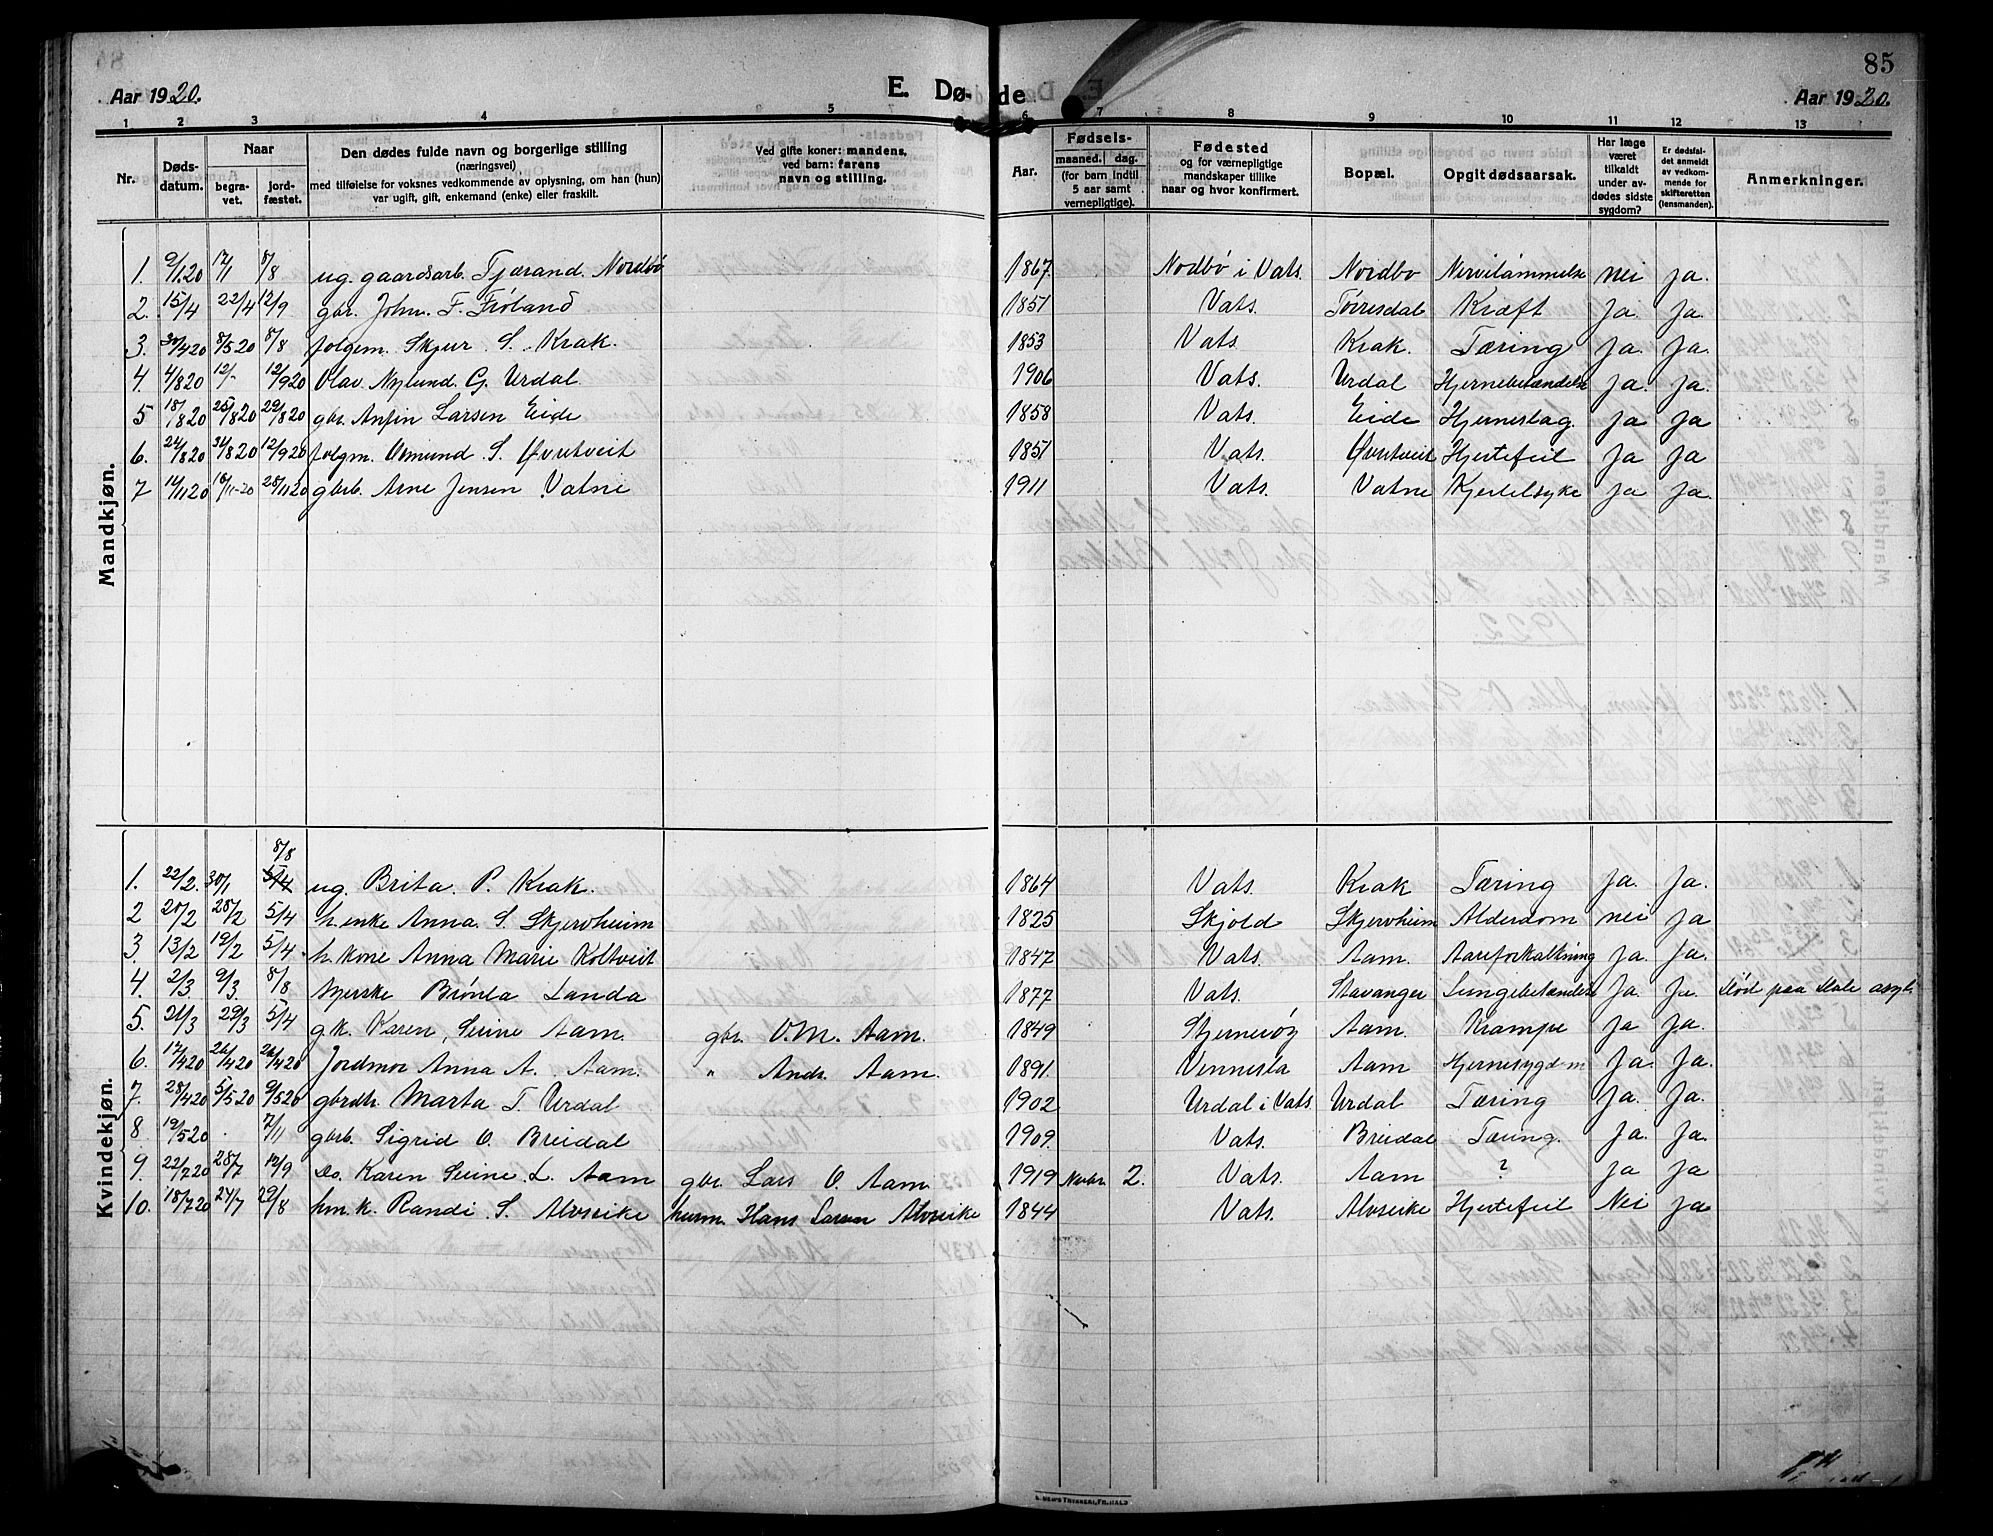 85
Aar 1920. E. Dø- de Aar 1920.
1 2 3 4 5 6 7 8 9 10 11 12 13
Nr. | Døds-datum. | Naar begra-vet. | Naar jord-fæstet. | Den dødes fulde navn og borgerlige stilling (næringsvei) med tilføielse for voksnes vedkommende av oplysning, om han (hun) var ugift, gift, enkemand (enke) eller fraskilt. | Ved gifte koner: mandens, ved barn: farens navn og stilling. | Aar. | Fødsels- maaned. dag. (for barn indtil 5 aar samt vernepligtige). | Fødested og for værnepligtige mandskaper tillike naar og hvor konfirmert. | Bopæl. | Opgit dødsaarsak. | Har læge været tilkaldt under av-dødes sidste sygdom? | Er dødsfal-det anmeldt av vedkom-mende for skifteretten (lensmanden). | Anmerkninger.
Mandkjøn.
1. 9/1.20 17/1 8/8 ug. gaardsarb. Tjærand. Nordbø 1867. Nodbø i Vats. Nordbo Nervelammelse nei ja.
2. 15/4 22/4 12/9 gbr. John. F. Frøland 1851 Vats. Torresdal Kræft Ja. Ja.
3. 30/420 8/520 8/8 folgem. Skjur S. Krak. 1853 Vats Krak. Tæring Ja. Ja.
4. 4/820 12/- 12/920 Olav Nylund. G. Urdal. 1906 Vats. Urdal Hjernebetændelse Ja. Ja.
5 18/820 25/820 29/820 gbr. Anfin Larsen Eide 1858 Vats. Eide Hjerneslag. Ja Ja
6. 24/820 31/820 12/920 folgm. Osmund S. Øvretveit 1851 Vats. Øvretveit Hjertefeil Ja Ja
7 14/1120 18/11-20 28/1120 gbrb. Arne Jensen Vatne 1911 Vats. Vatne Kjertelsyke Ja Ja.
Kvindekjøn.
8/8
1. 22/2. 30/1 5/4 ug. Brita. P. Krak. 1864 Vats. Krak Tæring Ja. Ja.
2 20/2 28/2 5/4 h. enke Anna. S. Skjervheim 1825 Skjold Skjervheim Alderdom nei Ja
3. 13/2 19/2 5/4 h. kone Anna Marie Koltveit 1847 Vats. Aam. Aareforkalkning Ja. Ja.
4. 2/3 9/3 8/8 Brønla Landa 1877 Vats. Stavanger Lungebetændelse Ja. Ja. død paa
5. 21/3 29/3 5/4 gk. Karen, Serine Aam. gbr. O.M. Aam. 1849 Stjernerøy Aam. Krampe Ja Ja.
6. 17/420 26/420 26/420 Jordmor Anna A. Aam. " Andr. Aam. 1891. Vennesla Aam Hjernesygdom Ja. Ja.
7. 28/420 5/520 9/520 gbrdtr. Marta T. Urdal 1902 Urdal i Vats Urdal Tæring Ja. Ja.
8. 19/520 . 7/11 gbrb. Sigrid O. Breidal 1909. Vats. Breidal Tæring. Ja. Ja.
9. 22/720 28/7 12/9 Do. Karen Serine L. Aam gbr. Lars O. Aam. 1919 Novbr 2. Vats. Aam ? Ja Ja
10. 18/720 24/7 29/8 hm. k. Randi S. Alvseike husm. Hans Larsen Alvseike 1844 Vats. Alvseike Hjertefeil Nei Ja